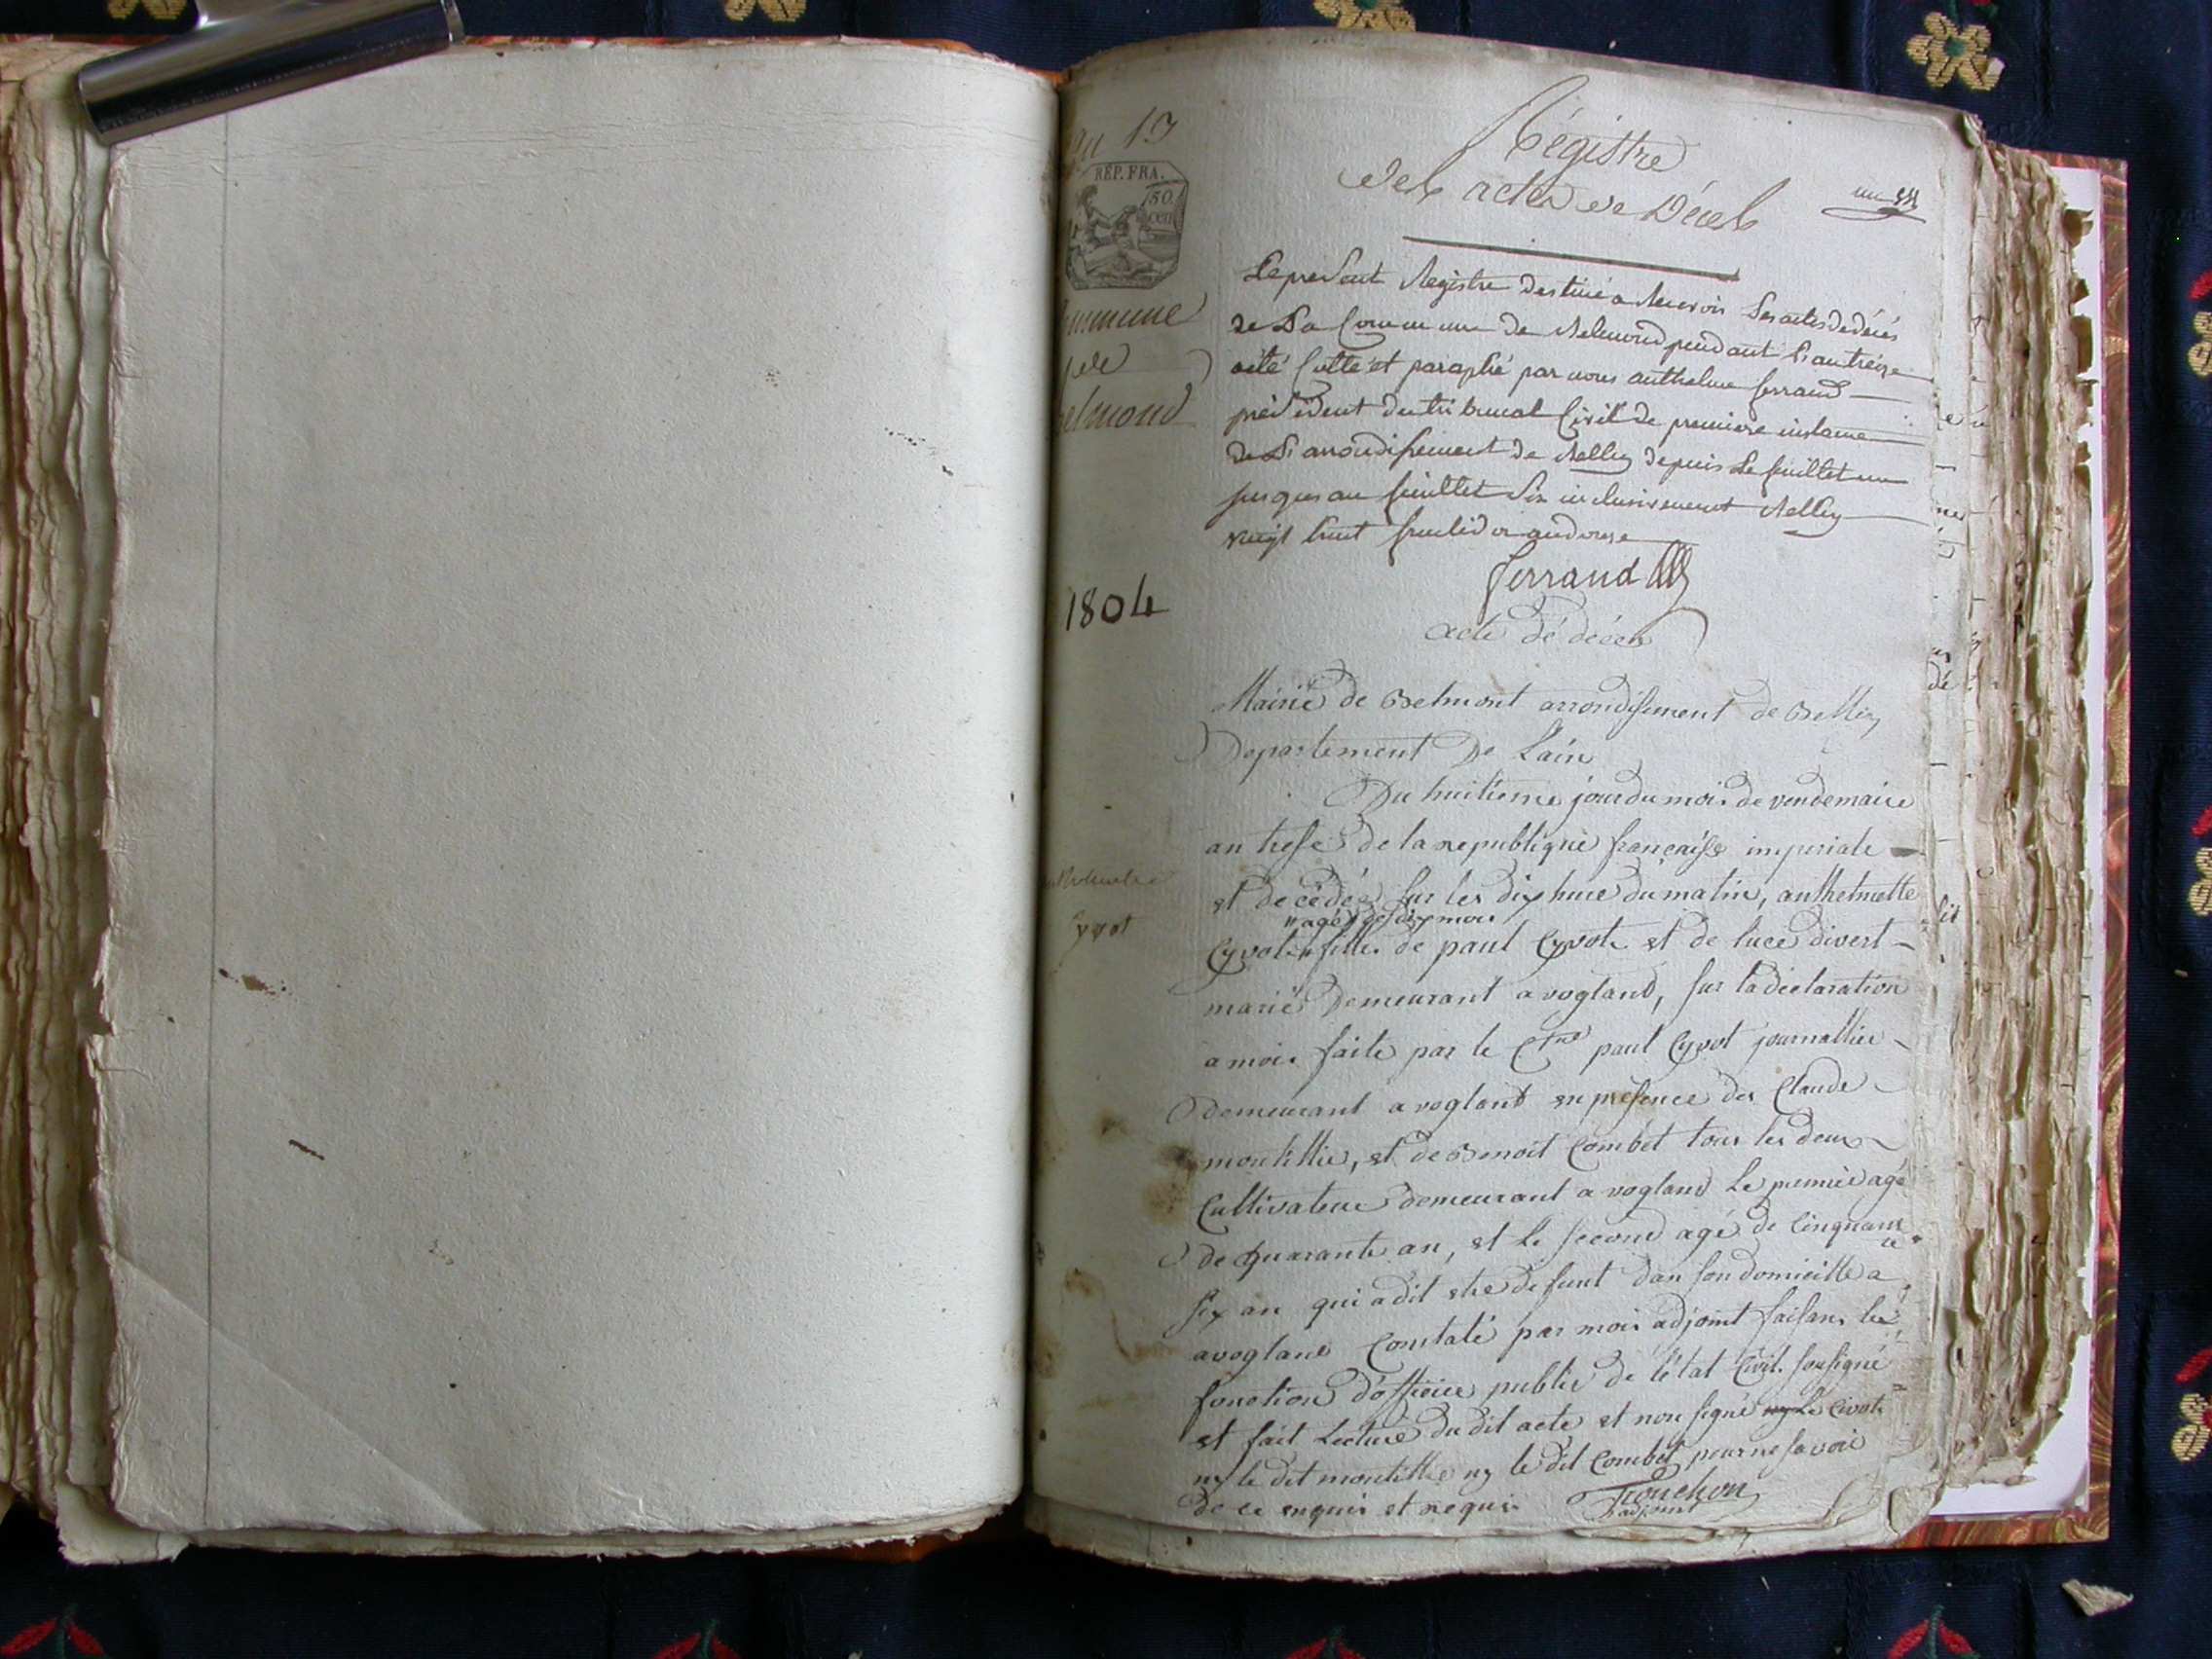 an 13
REP. FRA.
50
cen
commune
de
Belmond
Régistre
des actes de Décès
un
Le present Registre destiné a Recevoir Les actes de décés
de La Commune de Belmond pendant L'an treize
a été Cotté et paraphé par nous anthelme ferrand
président du tribunal Civil de premiere instance
de L'arrondissement de Belley depuis Le feuillet un
jusques au feuillet Six inclusivement Belley
vingt huit fructidor an douze
ferrand
1804
acte dé décés
Mairie de Belmont arrondissement de Belley
Departement De L'ain
Du huitieme jour du mois de vendemaire
an trese de la republique française imperiale
et décédée sur les dix hure du matin, anthelmette
"agée de dix mois
Cyvot " fille de paul Cyvot et de luce divert
Cyvot
marié Demeurant a vogland, sur la declaration
a moi faite par le Cyne paul Cyvot journallier
demeurant a vogland en presence des Claude
montillie, et de Benoit Combet tous les deux
Cultivateur demeurant a vogland Le premier agé
de quarante an, et le second agé de Cinquante
six an qui a dit etre defunt dan son domicille a
avogland Constaté par moi adjoint faisans les
fonction d'officier public de l'état Civil. sousigné
et fait Lecture du dit acte et non signé ny Le Civot
ny le dit montillie ny le dit Combet pour ne savoir
de ce enquis et requis
Trouchon
adjoint